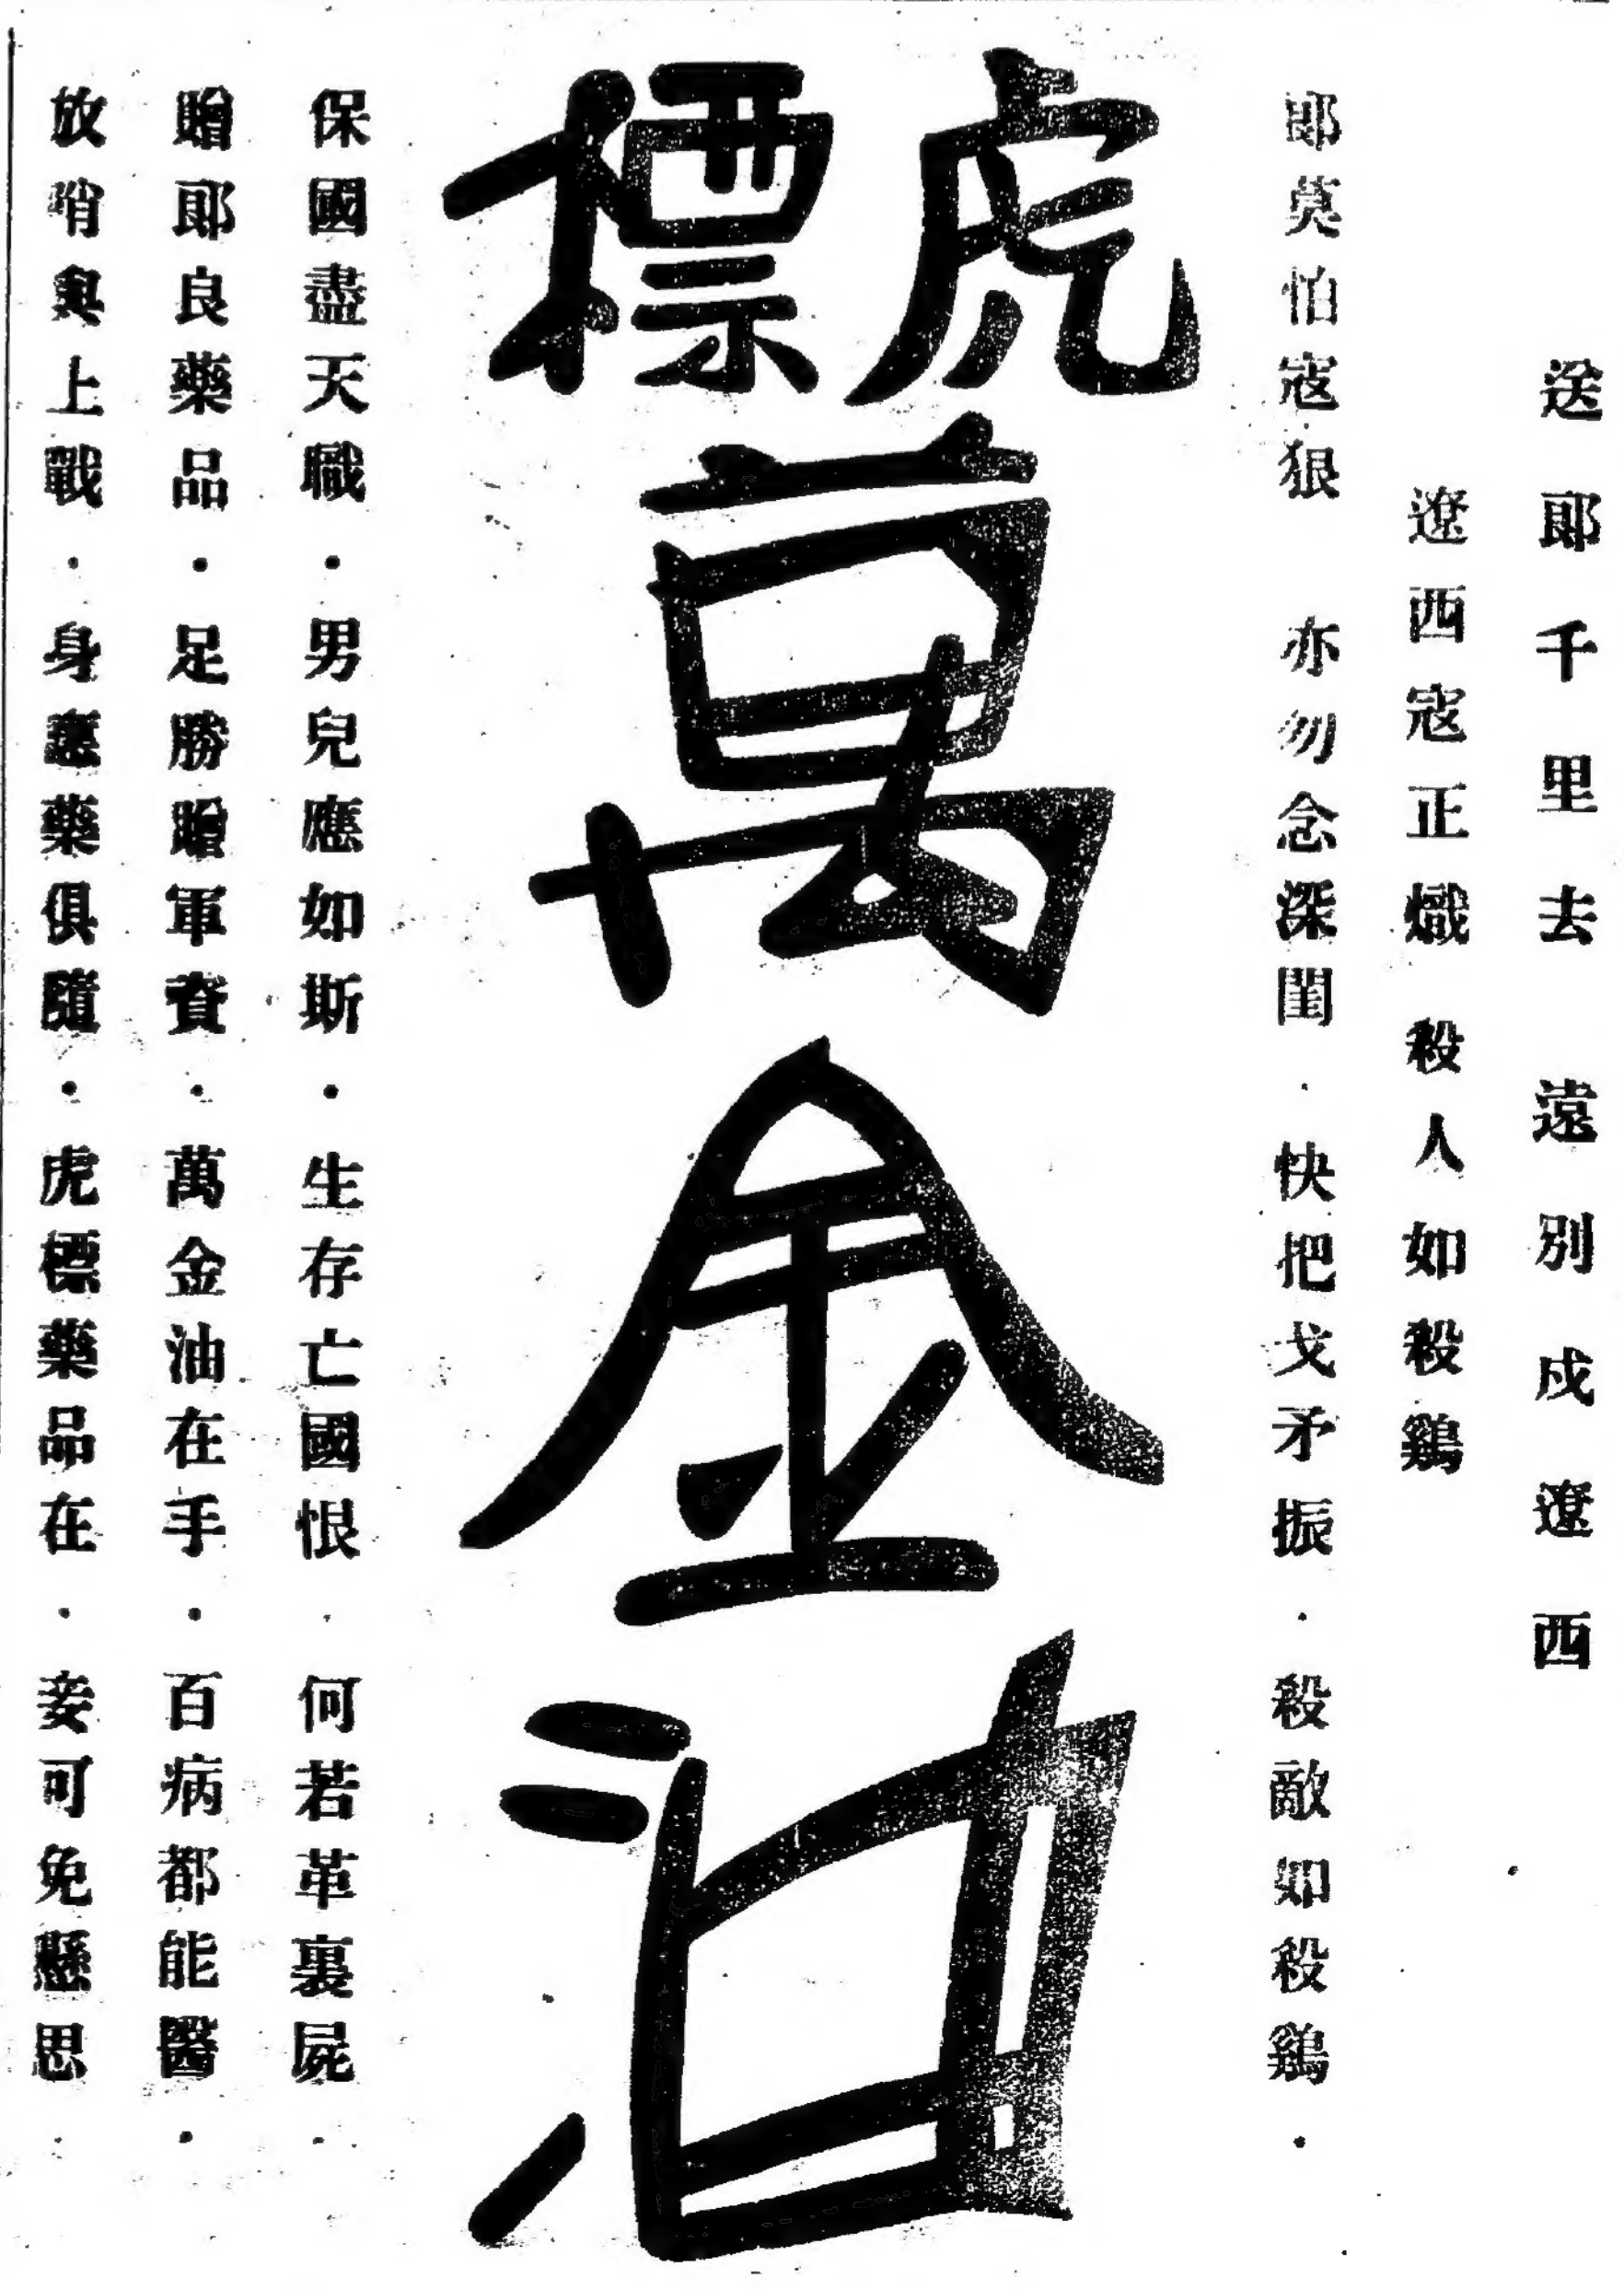 送郎千里去　遠別戍遼西
遼西寇正熾　殺人如殺鷄
郎莫怕寇狠　亦勿念深閨．快把戈矛振．殺敵如殺鷄．
虎標
萬金油
保國盡天職．男兒應如斯．生存亡國恨．何若革裏屍．
贈郎良藥品．足勝贈軍資．萬金油在手．百病都能醫．
放哨與上戰．身邊藥俱隨．虎標藥品在．妾可免懸思．